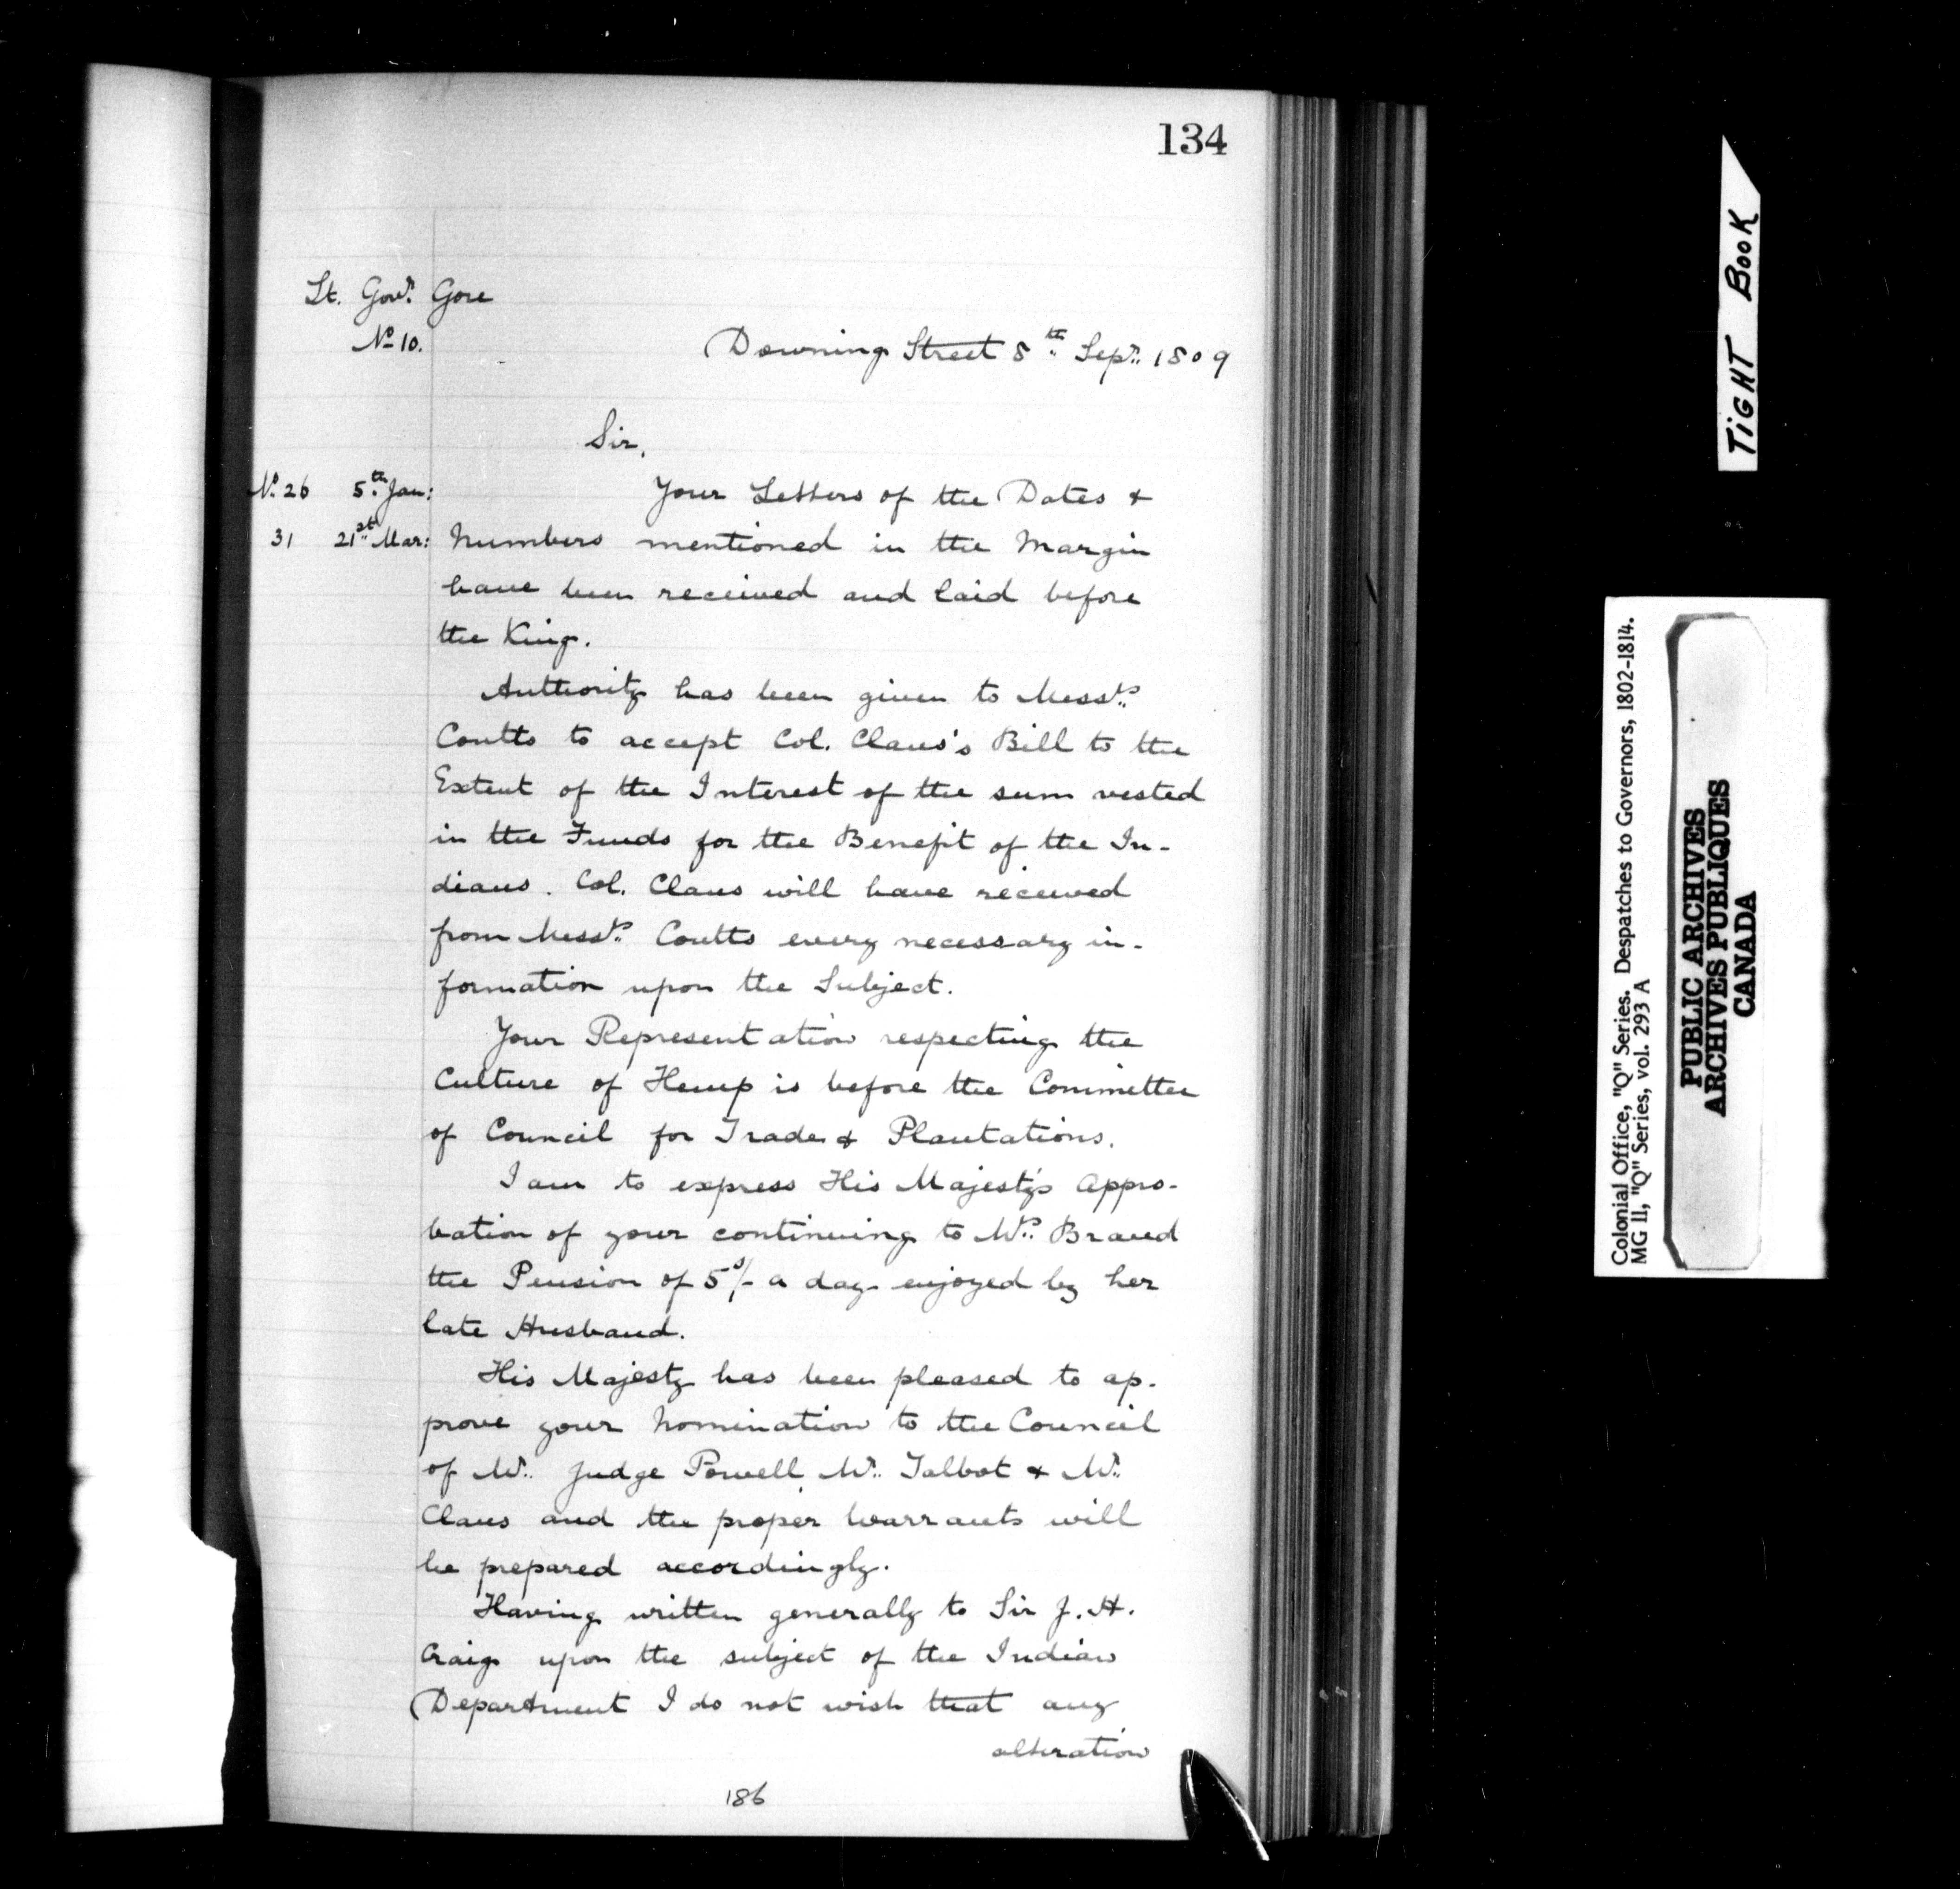 134
Lt. Govr. Gore
No 10.
Downing Street 8th Sepr. 1809
Sir,
No. 26 5th Jan: Your Letters of the Dates &
31 21st Mar: Numbers mentioned in the Margin
have been received and laid before
the King.
Authority has been given to Messrs.
Coutts to accept Col. Claus's Bill to the
Extent of the Interest of the sum vested
in the Funds for the Benefit of the In-
dians. Col. Claus will have received
from Messrs. Coutts every necessary in-
formation upon the Subject.
Your Representation respecting the
Culture of Hemp is before the Committee
of Council for Trade & Plantations.
I am to express His Majesty's Appro-
bation of your continuing to Mrs. Brand
the Pension of 5s/- a day enjoyed by her
late Husband.
His Majesty has been pleased to ap-
prove your Nomination to the Council
of Mr. Judge Powell, Mr. Talbot & Mr.
Claus and the proper Warrants will
be prepared accordingly.
Having written generally to Sir J. H.
Craig upon the subject of the Indian
Department I do not wish that any
alteration
186
TIGHT BOOK
Colonial Office, "Q" Series. Despatches to Governors, 1802-1814.
MG 11, "Q" Series, vol. 293 A
PUBLIC ARCHIVES
ARCHIVES PUBLIQUES
CANADA